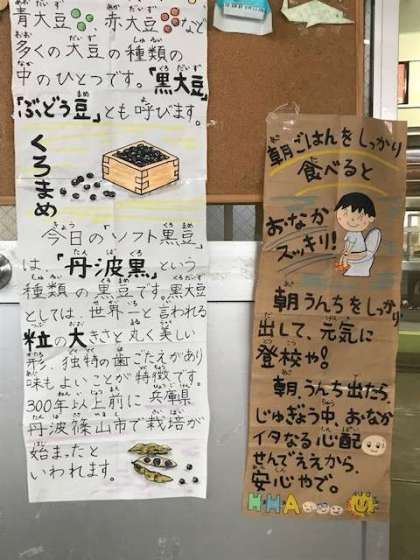 青大豆 赤大豆など
多くの大豆の種類の
中のひとつです。「黒大豆」
「ぶどう豆」とも呼びます。
くろまめ
今日のソフト黒豆
は、「丹波黒」という
種類の黒豆です。黒大豆
としては、世界一と言われる
粒の大きさと丸く美しい
形、独特の歯ごたえがあり
味もよいことが特徴です。
300年以上前に兵庫県
丹波篠山市で栽培が
始まったと
いわれます。
朝ごはんをしっかり
食べると
おなか
スッキリ!
朝うんちをしっかり
出して、元気に
登校や!
朝、うんち出たら、
じゅぎょう中、おなか
イタなる心配
せんでええから、
安心やで。